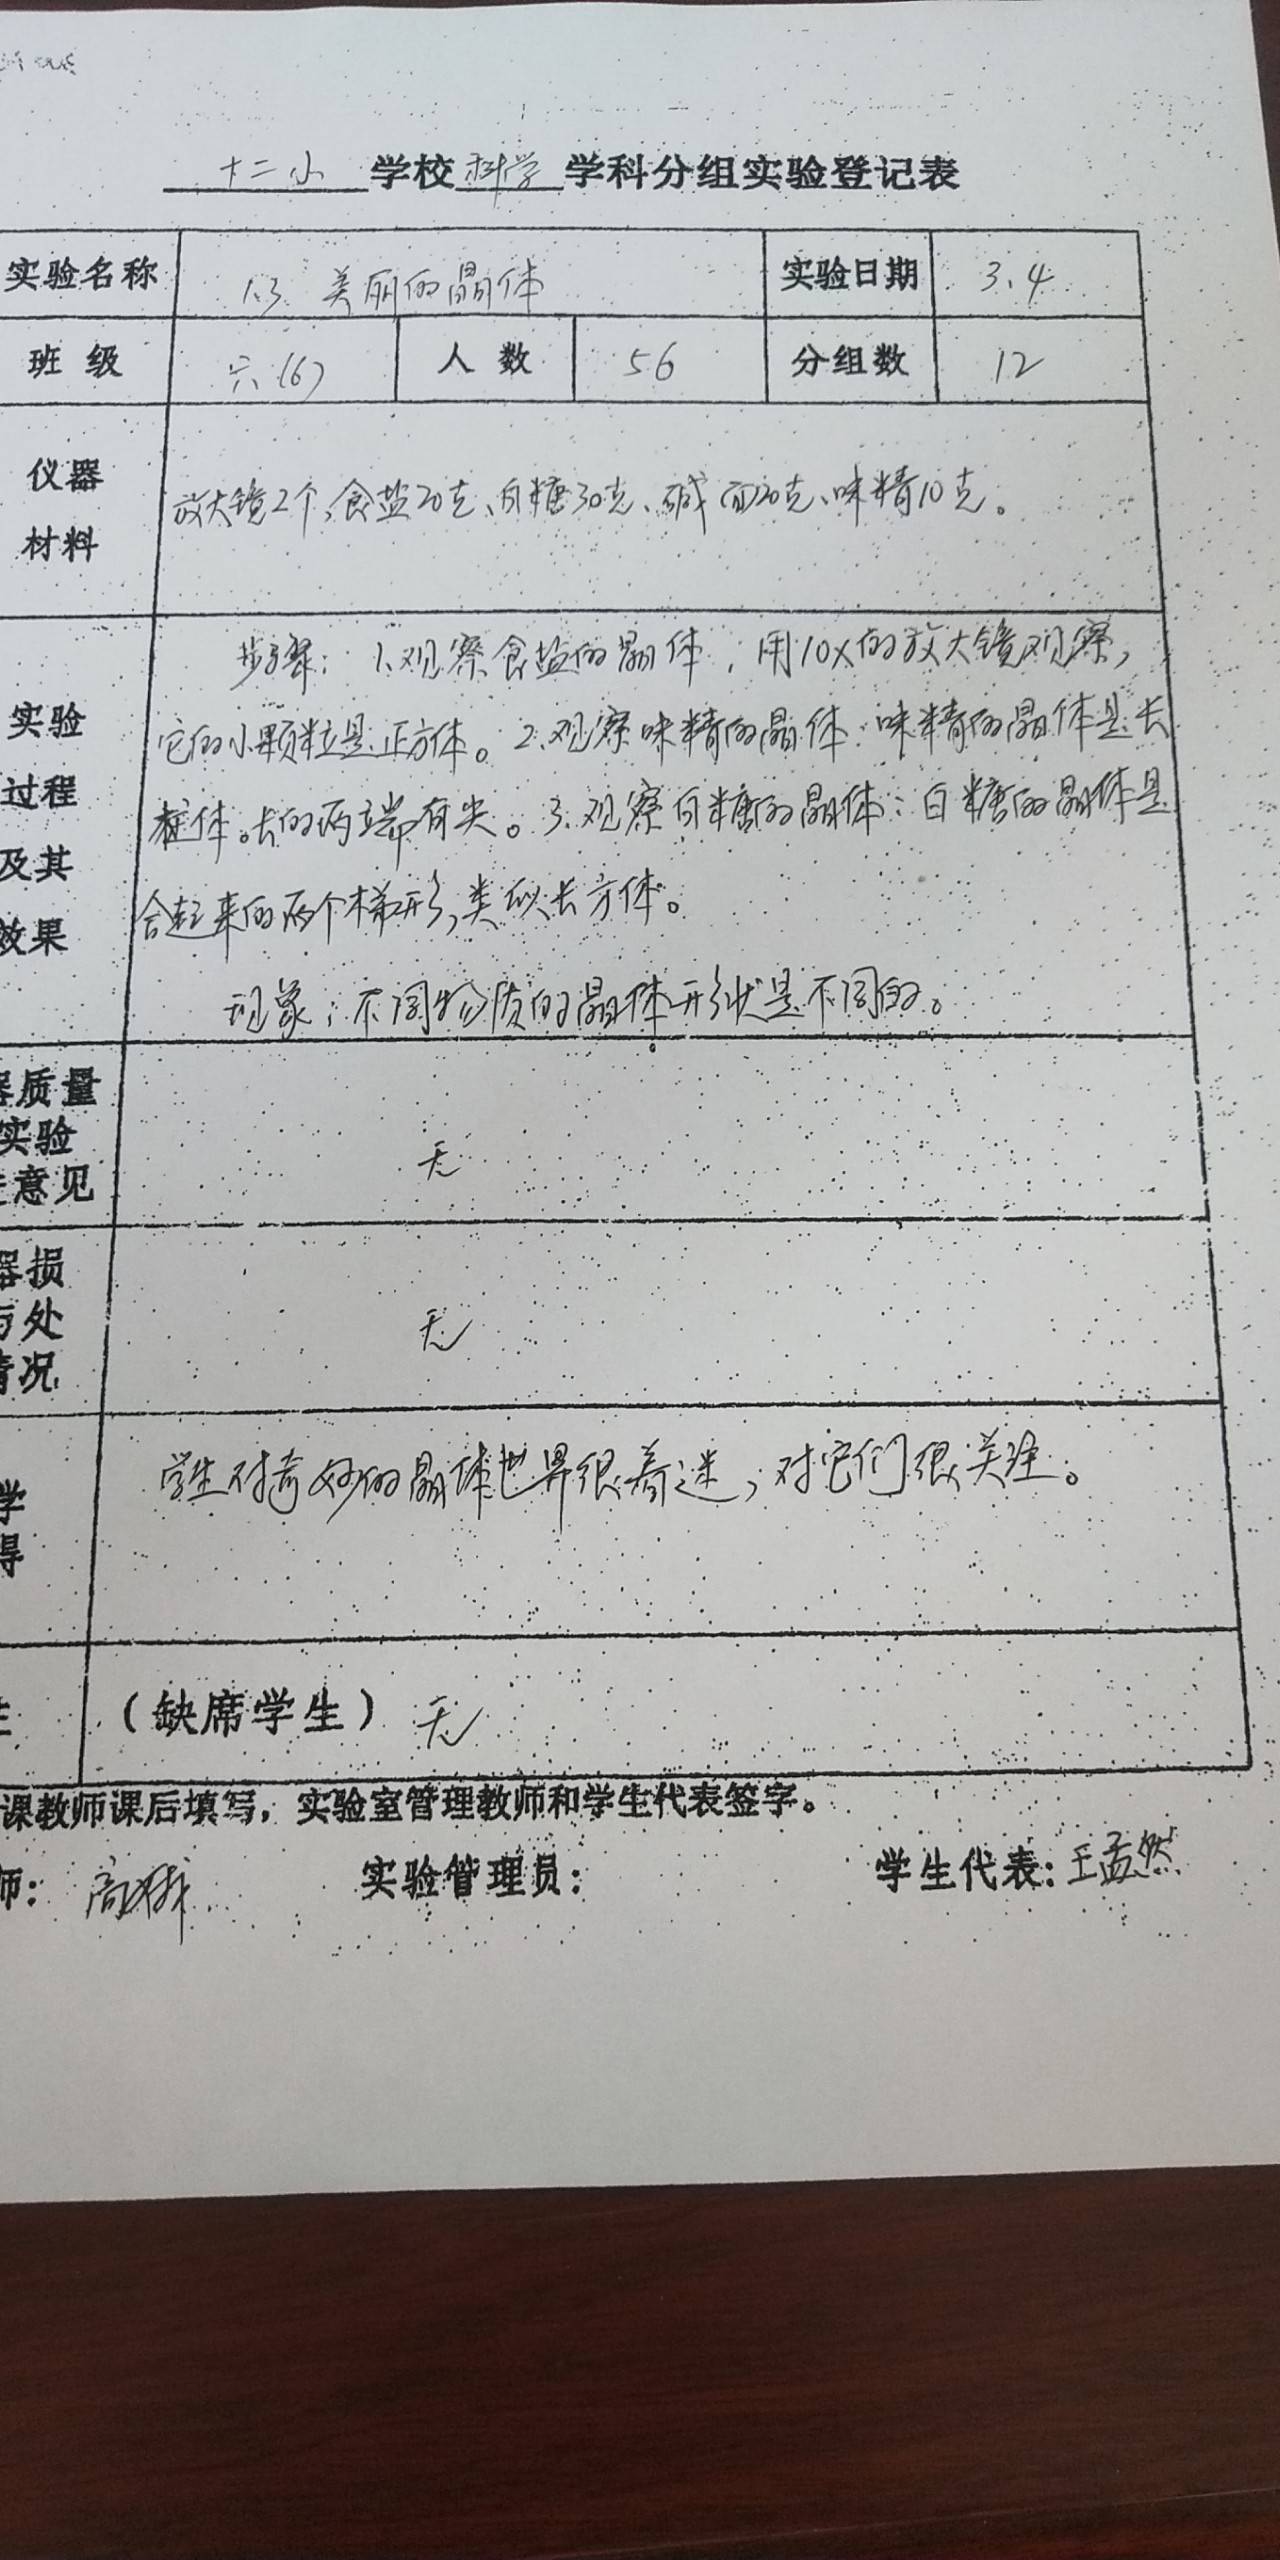 十二小 学校 科学 学科分组实验登记表
实验名称 1.3 美丽的晶体 实验日期 3.4
班级 六(6) 人数 56 分组数 12
仪器
材料
放大镜2个,食盐20克、白糖30克、碱面20克、味精10克。
实验
过程
及其
效果
步骤:1.观察食盐的晶体,用10X的放大镜观察,
它的小颗粒是正方体。2.观察味精的晶体:味精的晶体是长
柱体。长的两端有尖。3.观察白糖的晶体:白糖的晶体是
合起来的两个梯形,类似长方体。
现象:不同物质的晶体形状是不同的。
器质量
实验
意见
无
器损
与处
情况
无
学
得
学生对奇妙的晶体世界很着迷,对它们很关注。
(缺席学生) 无
课教师课后填写,实验室管理教师和学生代表签字。
师: 实验管理员: 学生代表:王孟然